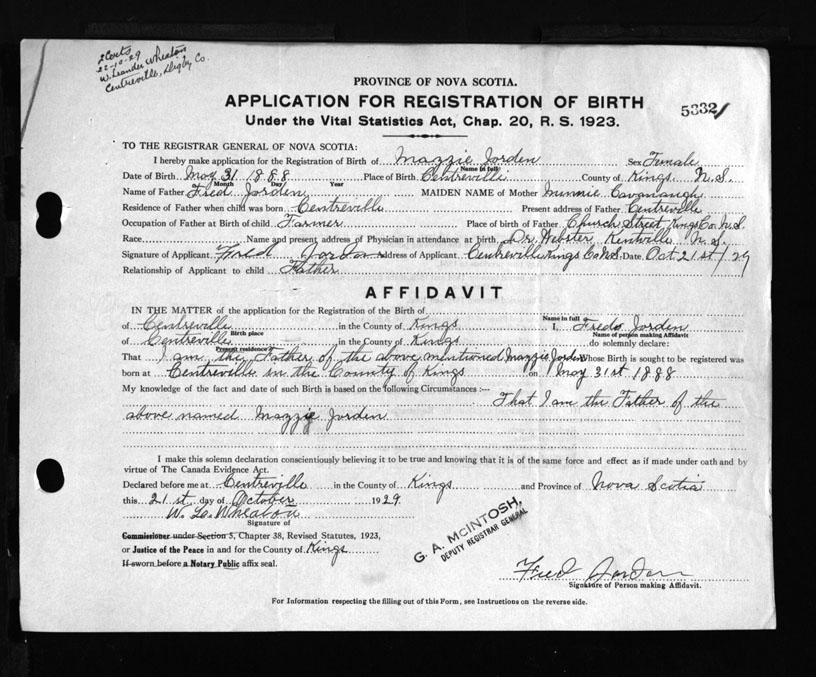 2 Certs
22-10-29
W. Leander Wheaton
Centreville, Digby Co.
PROVINCE OF NOVA SCOTIA.
APPLICATION FOR REGISTRATION OF BIRTH
Under the Vital Statistics Act, Chap. 20, R. S. 1923.
53321
TO THE REGISTRAR GENERAL OF NOVA SCOTIA:
I hereby make application for the Registration of Birth of Mazzie Jorden Sex Female
Name in full
Date of Birth May 31 1888 Place of Birth Centreville County of Kings N.S.
Month Day Year
Name of Father Fred Jorden MAIDEN NAME of Mother Minnie Cavanaugh
Residence of Father when child was born Centreville Present address of Father Centreville
Occupation of Father at Birth of child Farmer Place of birth of Father Church Street Kings Co. N.S.
Race Name and present address of Physician in attendance at birth Dr. Webster Kentville N.S.
Signature of Applicant Fred Jorden Address of Applicant Centreville Kings Co N.S. Date Oct 21st / 29
Relationship of Applicant to child Father
AFFIDAVIT
IN THE MATTER of the application for the Registration of the Birth of
Name in full
of Centreville in the County of Kings I, Fred Jorden
Birth place Name of person making Affidavit
of Centreville in the County of Kings do solemnly declare:
Present residence
That I am the Father of the above mentioned Mazzie Jorden Whose Birth is sought to be registered was
born at Centreville in the County of Kings on May 31st 1888
My knowledge of the fact and date of such Birth is based on the following Circumstances :—
That I am the Father of the
above named Mazzie Jorden
I make this solemn declaration conscientiously believing it to be true and knowing that it is of the same force and effect as if made under oath and by
virtue of The Canada Evidence Act.
Declared before me at Centreville in the County of Kings and Province of Nova Scotia
this 21st day of October 1929
W. L. Wheaton
Signature of
Commissioner under Section 5, Chapter 38, Revised Statutes, 1923,
or Justice of the Peace in and for the County of Kings
If sworn before a Notary Public affix seal.
G. A. McINTOSH,
DEPUTY REGISTRAR GENERAL
Fred Jorden
Signature of Person making Affidavit.
For Information respecting the filling out of this Form, see Instructions on the reverse side.